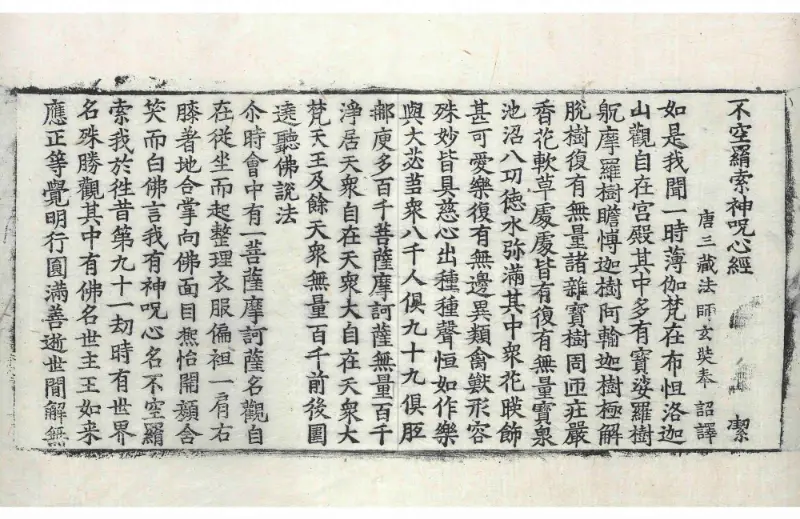 不空羂索神呪心經 潔
唐三藏法師玄奘奉 詔譯
如是我聞一時薄伽梵在布怛洛迦
山觀自在宮殿其中多有寶娑羅樹
躭摩羅樹瞻博迦樹阿輸迦樹極解
脫樹復有無量諸雜寶樹周匝莊嚴
香花軟草處處皆有復有無量寶泉
池沼八功德水弥滿其中衆花暎飾
甚可愛樂復有無邊異類禽獸形容
殊妙皆具慈心出種種聲恒如作樂
與大苾蒭衆八千人俱九十九俱胝
那庾多百千菩薩摩訶薩無量百千
淨居天衆自在天衆大自在天衆大
梵天王及餘天衆無量百千前後圍
遶聽佛說法
尒時會中有一菩薩摩訶薩名觀自
在從坐而起整理衣服偏袒一肩右
膝著地合掌向佛面目熙怡開顏含
笑而白佛言我有神呪心名不空羂
索我於徃昔第九十一劫時有世界
名殊勝觀其中有佛名世主王如来
應正等覺明行圓滿善逝世間解無